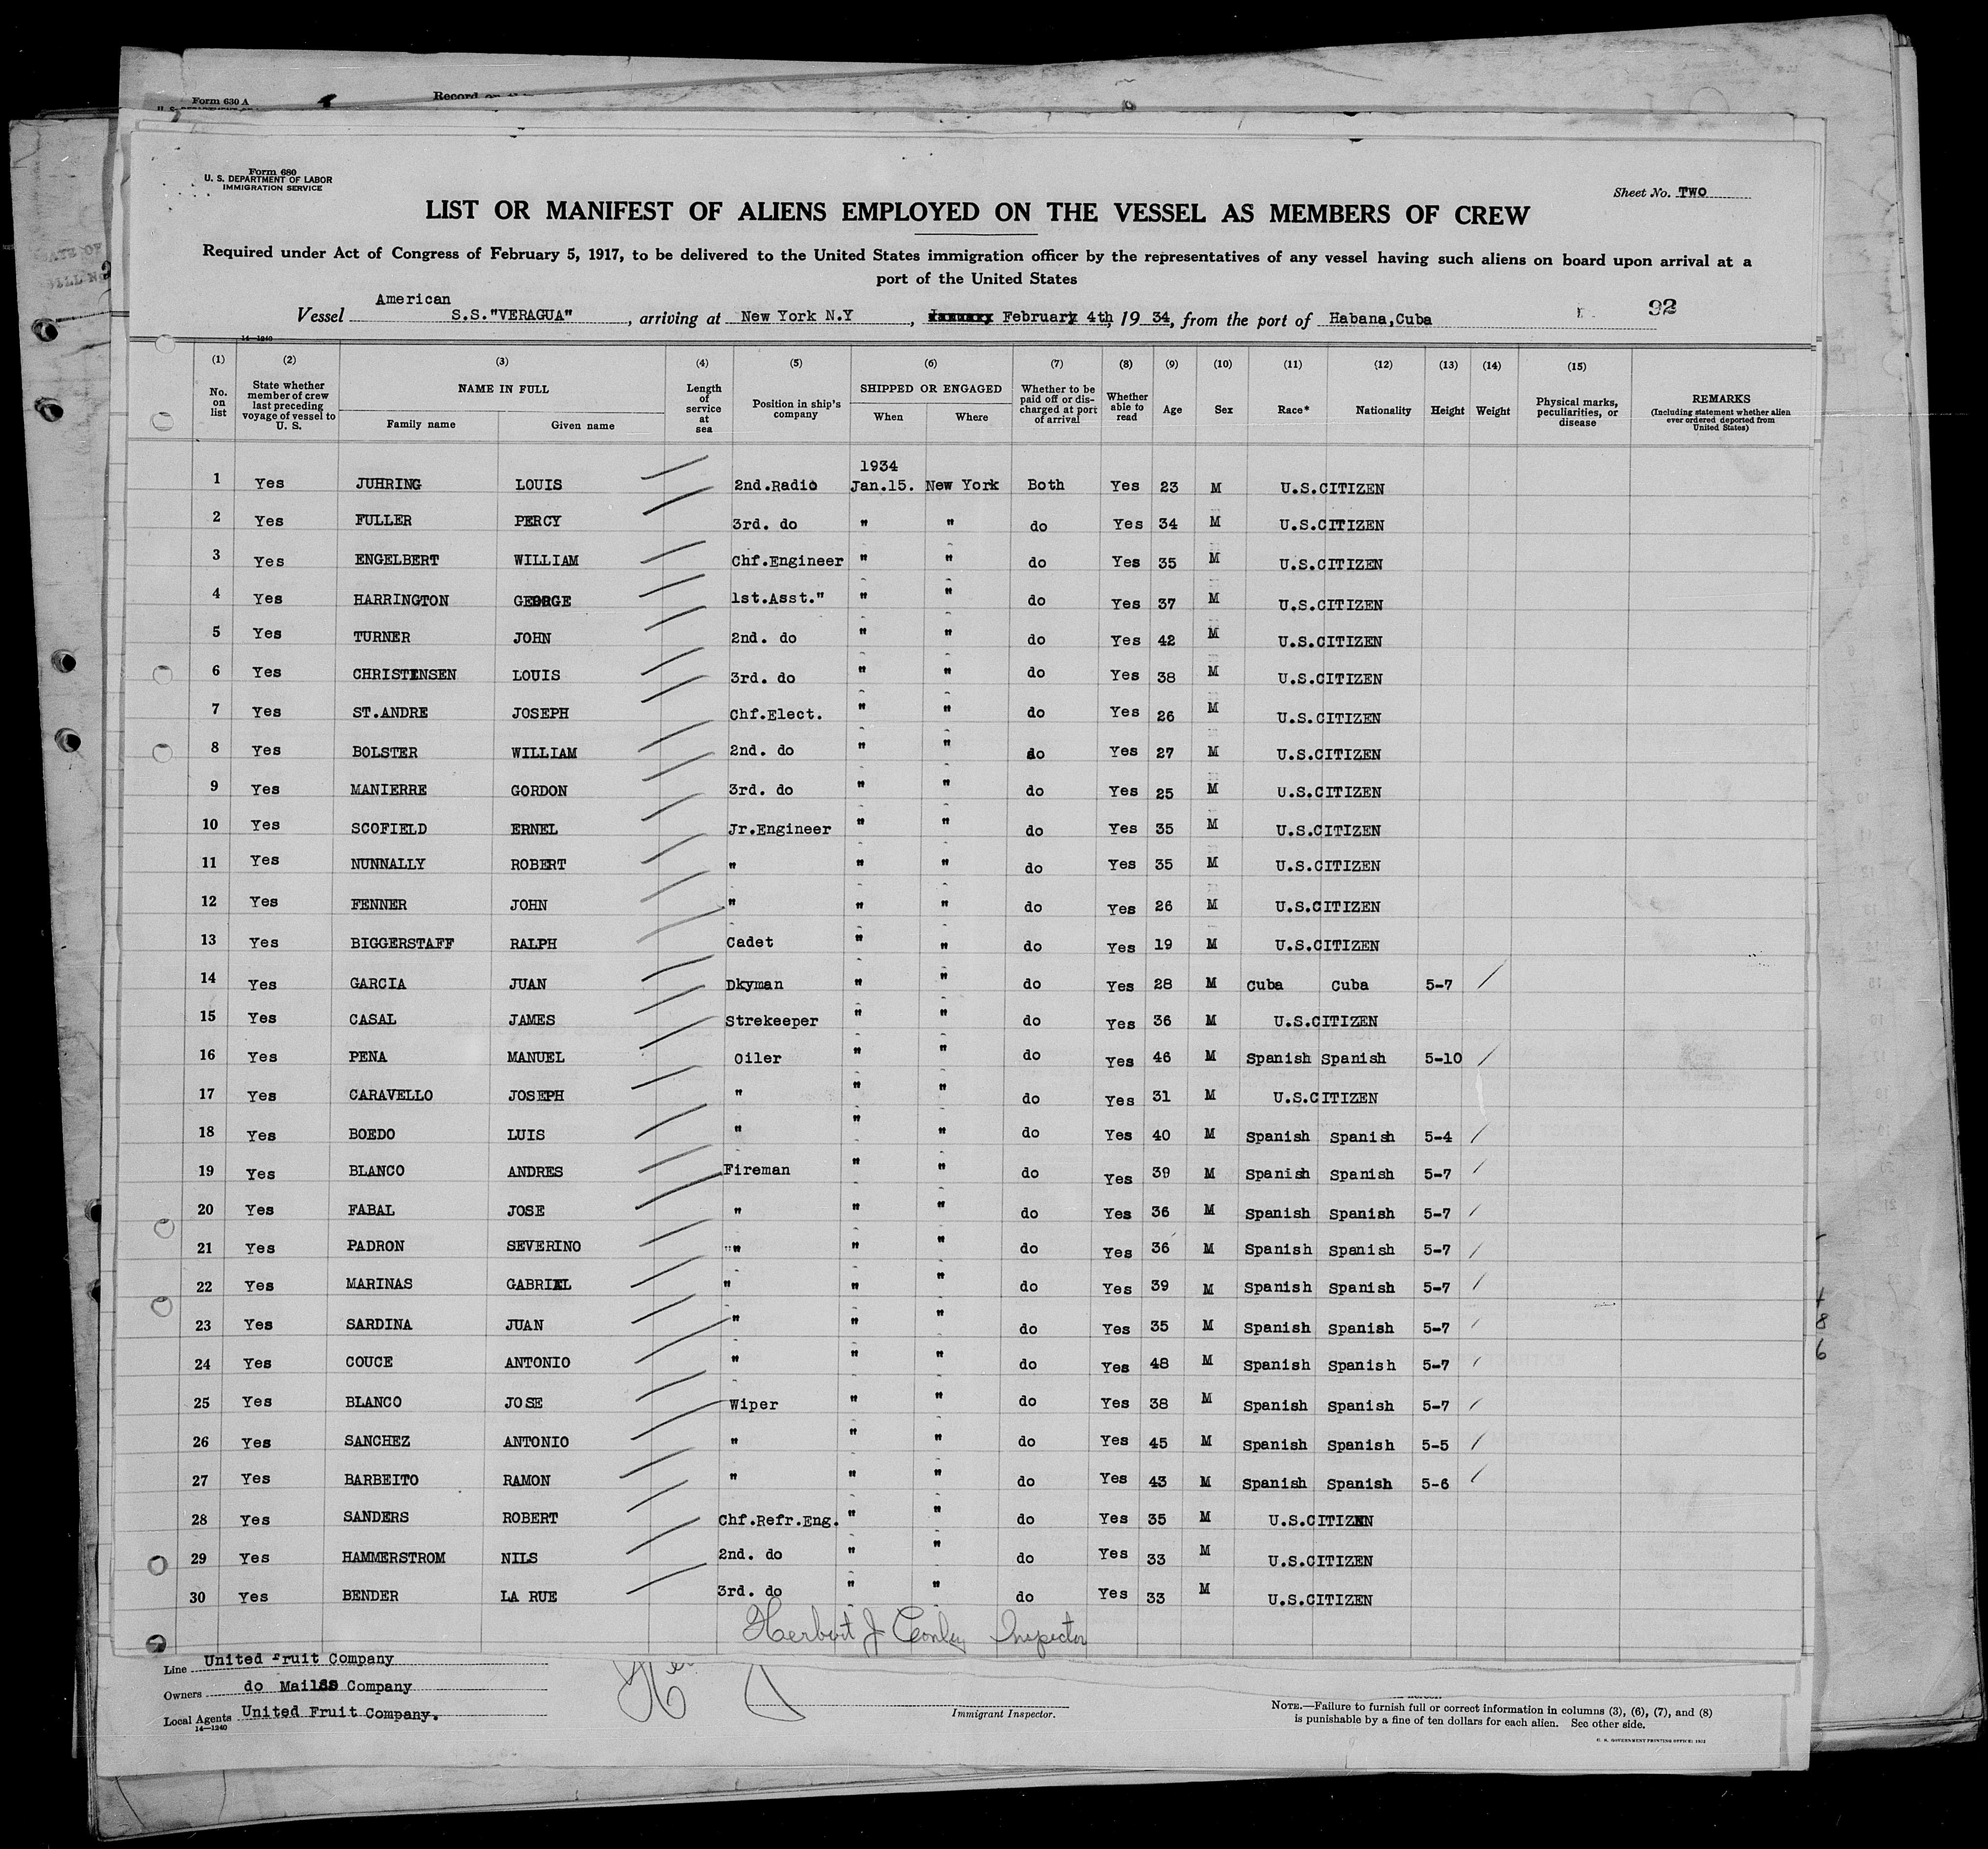 Form 630 A
Record on
Form 680
U. S. DEPARTMENT OF LABOR
IMMIGRATION SERVICE
Sheet No. TWO
LIST OR MANIFEST OF ALIENS EMPLOYED ON THE VESSEL AS MEMBERS OF CREW
Required under Act of Congress of February 5, 1917, to be delivered to the United States immigration officer by the representatives of any vessel having such aliens on board upon arrival at a
port of the United States
American
Vessel S.S."VERAGUA", arriving at New York N.Y, January February 4th, 19 34, from the port of Habana,Cuba 92
14—1240
(1) (2) (3) (4) (5) (6) (7) (8) (9) (10) (11) (12) (13) (14) (15)
No. on list State whether member of crew last preceding voyage of vessel to U. S. NAME IN FULL Family name Given name Length of service at sea Position in ship's company SHIPPED OR ENGAGED When Where Whether to be paid off or discharged at port of arrival Whether able to read Age Sex Race* Nationality Height Weight Physical marks, peculiarities, or disease REMARKS (Including statement whether alien ever ordered deported from United States)
1934
1 Yes JUHRING LOUIS 2nd.Radio Jan.15. New York Both Yes 23 M U.S.CITIZEN
2 Yes FULLER PERCY 3rd. do " " do Yes 34 M U.S.CITIZEN
3 Yes ENGELBERT WILLIAM Chf.Engineer " " do Yes 35 M U.S.CITIZEN
4 Yes HARRINGTON GEORGE 1st.Asst." " " do Yes 37 M U.S.CITIZEN
5 Yes TURNER JOHN 2nd. do " " do Yes 42 M U.S.CITIZEN
6 Yes CHRISTENSEN LOUIS 3rd. do " " do Yes 38 M U.S.CITIZEN
7 Yes ST.ANDRE JOSEPH Chf.Elect. " " do Yes 26 M U.S.CITIZEN
8 Yes BOLSTER WILLIAM 2nd. do " " do Yes 27 M U.S.CITIZEN
9 Yes MANIERRE GORDON 3rd. do " " do Yes 25 M U.S.CITIZEN
10 Yes SCOFIELD ERNEL Jr.Engineer " " do Yes 35 M U.S.CITIZEN
11 Yes NUNNALLY ROBERT " " " do Yes 35 M U.S.CITIZEN
12 Yes FENNER JOHN " " " do Yes 26 M U.S.CITIZEN
13 Yes BIGGERSTAFF RALPH Cadet " " do Yes 19 M U.S.CITIZEN
14 Yes GARCIA JUAN Dkyman " " do Yes 28 M Cuba Cuba 5-7
15 Yes CASAL JAMES Strekeeper " " do Yes 36 M U.S.CITIZEN
16 Yes PENA MANUEL Oiler " " do Yes 46 M Spanish Spanish 5-10
17 Yes CARAVELLO JOSEPH " " " do Yes 31 M U.S.CITIZEN
18 Yes BOEDO LUIS " " " do Yes 40 M Spanish Spanish 5-4
19 Yes BLANCO ANDRES Fireman " " do Yes 39 M Spanish Spanish 5-7
20 Yes FABAL JOSE " " " do Yes 36 M Spanish Spanish 5-7
21 Yes PADRON SEVERINO " " " do Yes 36 M Spanish Spanish 5-7
22 Yes MARINAS GABRIEL " " " do Yes 39 M Spanish Spanish 5-7
23 Yes SARDINA JUAN " " " do Yes 35 M Spanish Spanish 5-7
24 Yes COUCE ANTONIO " " " do Yes 48 M Spanish Spanish 5-7
25 Yes BLANCO JOSE Wiper " " do Yes 38 M Spanish Spanish 5-7
26 Yes SANCHEZ ANTONIO " " " do Yes 45 M Spanish Spanish 5-5
27 Yes BARBEITO RAMON " " " do Yes 43 M Spanish Spanish 5-6
28 Yes SANDERS ROBERT Chf.Refr.Eng. " " do Yes 35 M U.S.CITIZEN
29 Yes HAMMERSTROM NILS 2nd. do " " do Yes 33 M U.S.CITIZEN
30 Yes BENDER LA RUE 3rd. do " " do Yes 33 M U.S.CITIZEN
Herbert J Conley Inspector
Line United Fruit Company
Owners do Mail SS Company
Local Agents United Fruit Company.
14—1240
Immigrant Inspector.
NOTE.—Failure to furnish full or correct information in columns (3), (6), (7), and (8)
is punishable by a fine of ten dollars for each alien. See other side.
U. S. GOVERNMENT PRINTING OFFICE: 1932